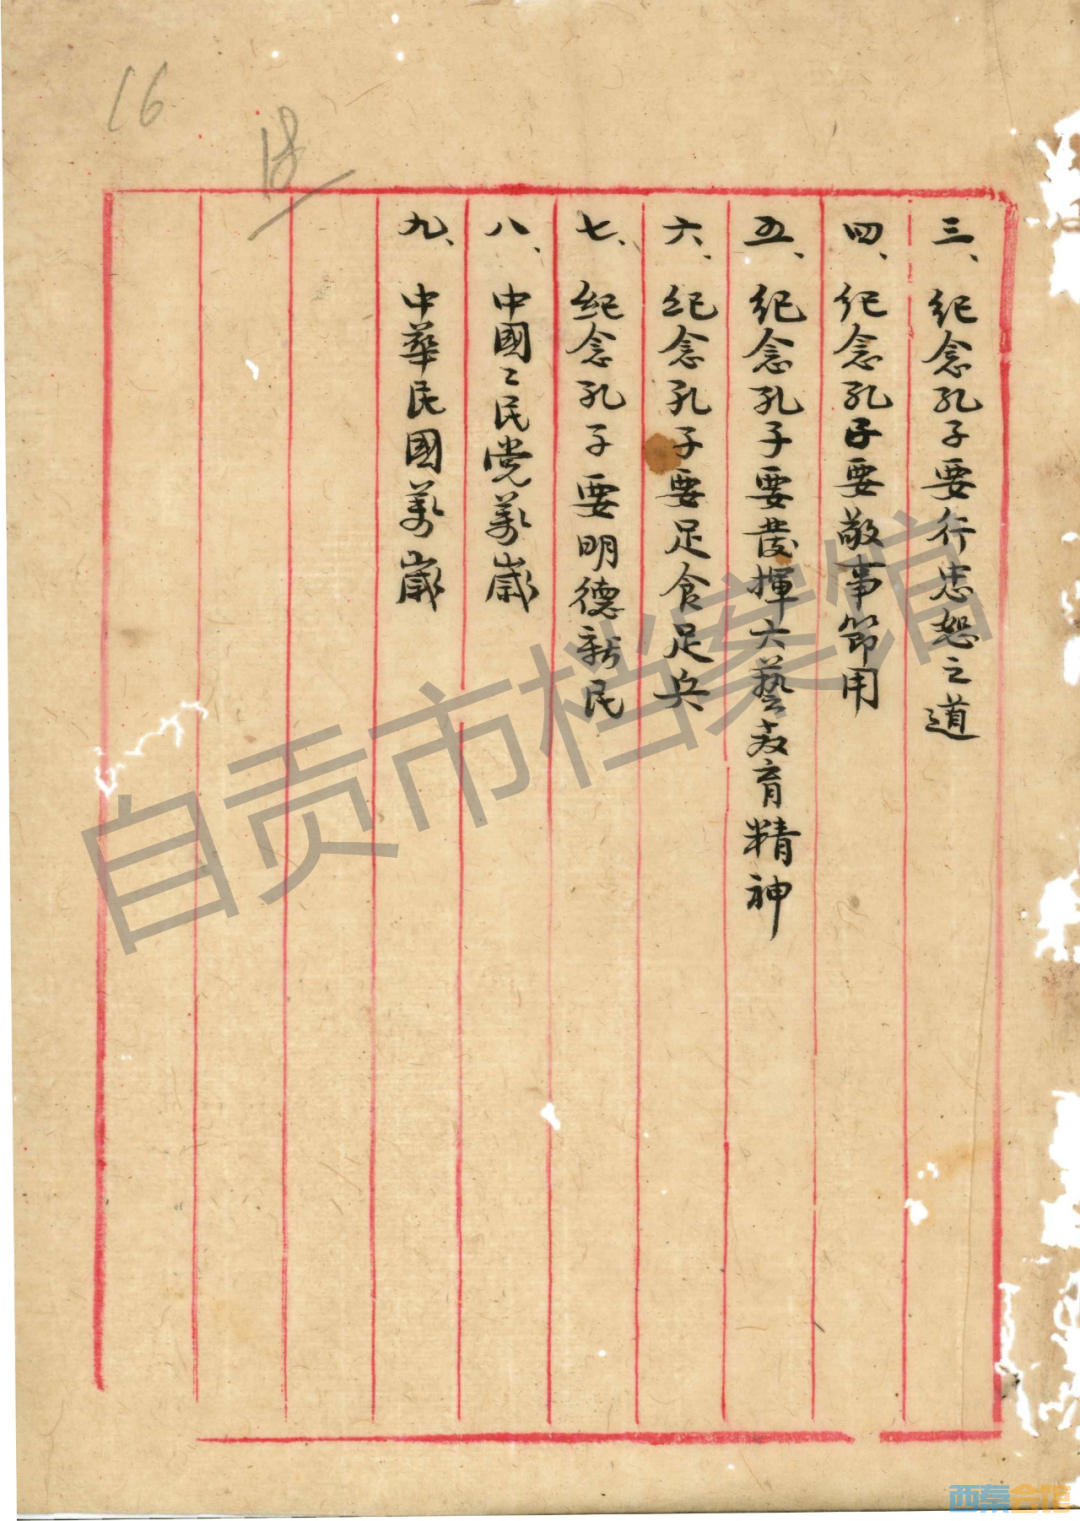 16
18
三、紀念孔子要行忠恕之道
四、紀念孔子要敬事節用
五、紀念孔子要發揮六藝教育精神
六、紀念孔子要足食足兵
七、紀念孔子要明德新民
八、中國〻民党萬歲
九、中華民國萬歲
自贡市档案馆
西秦会馆